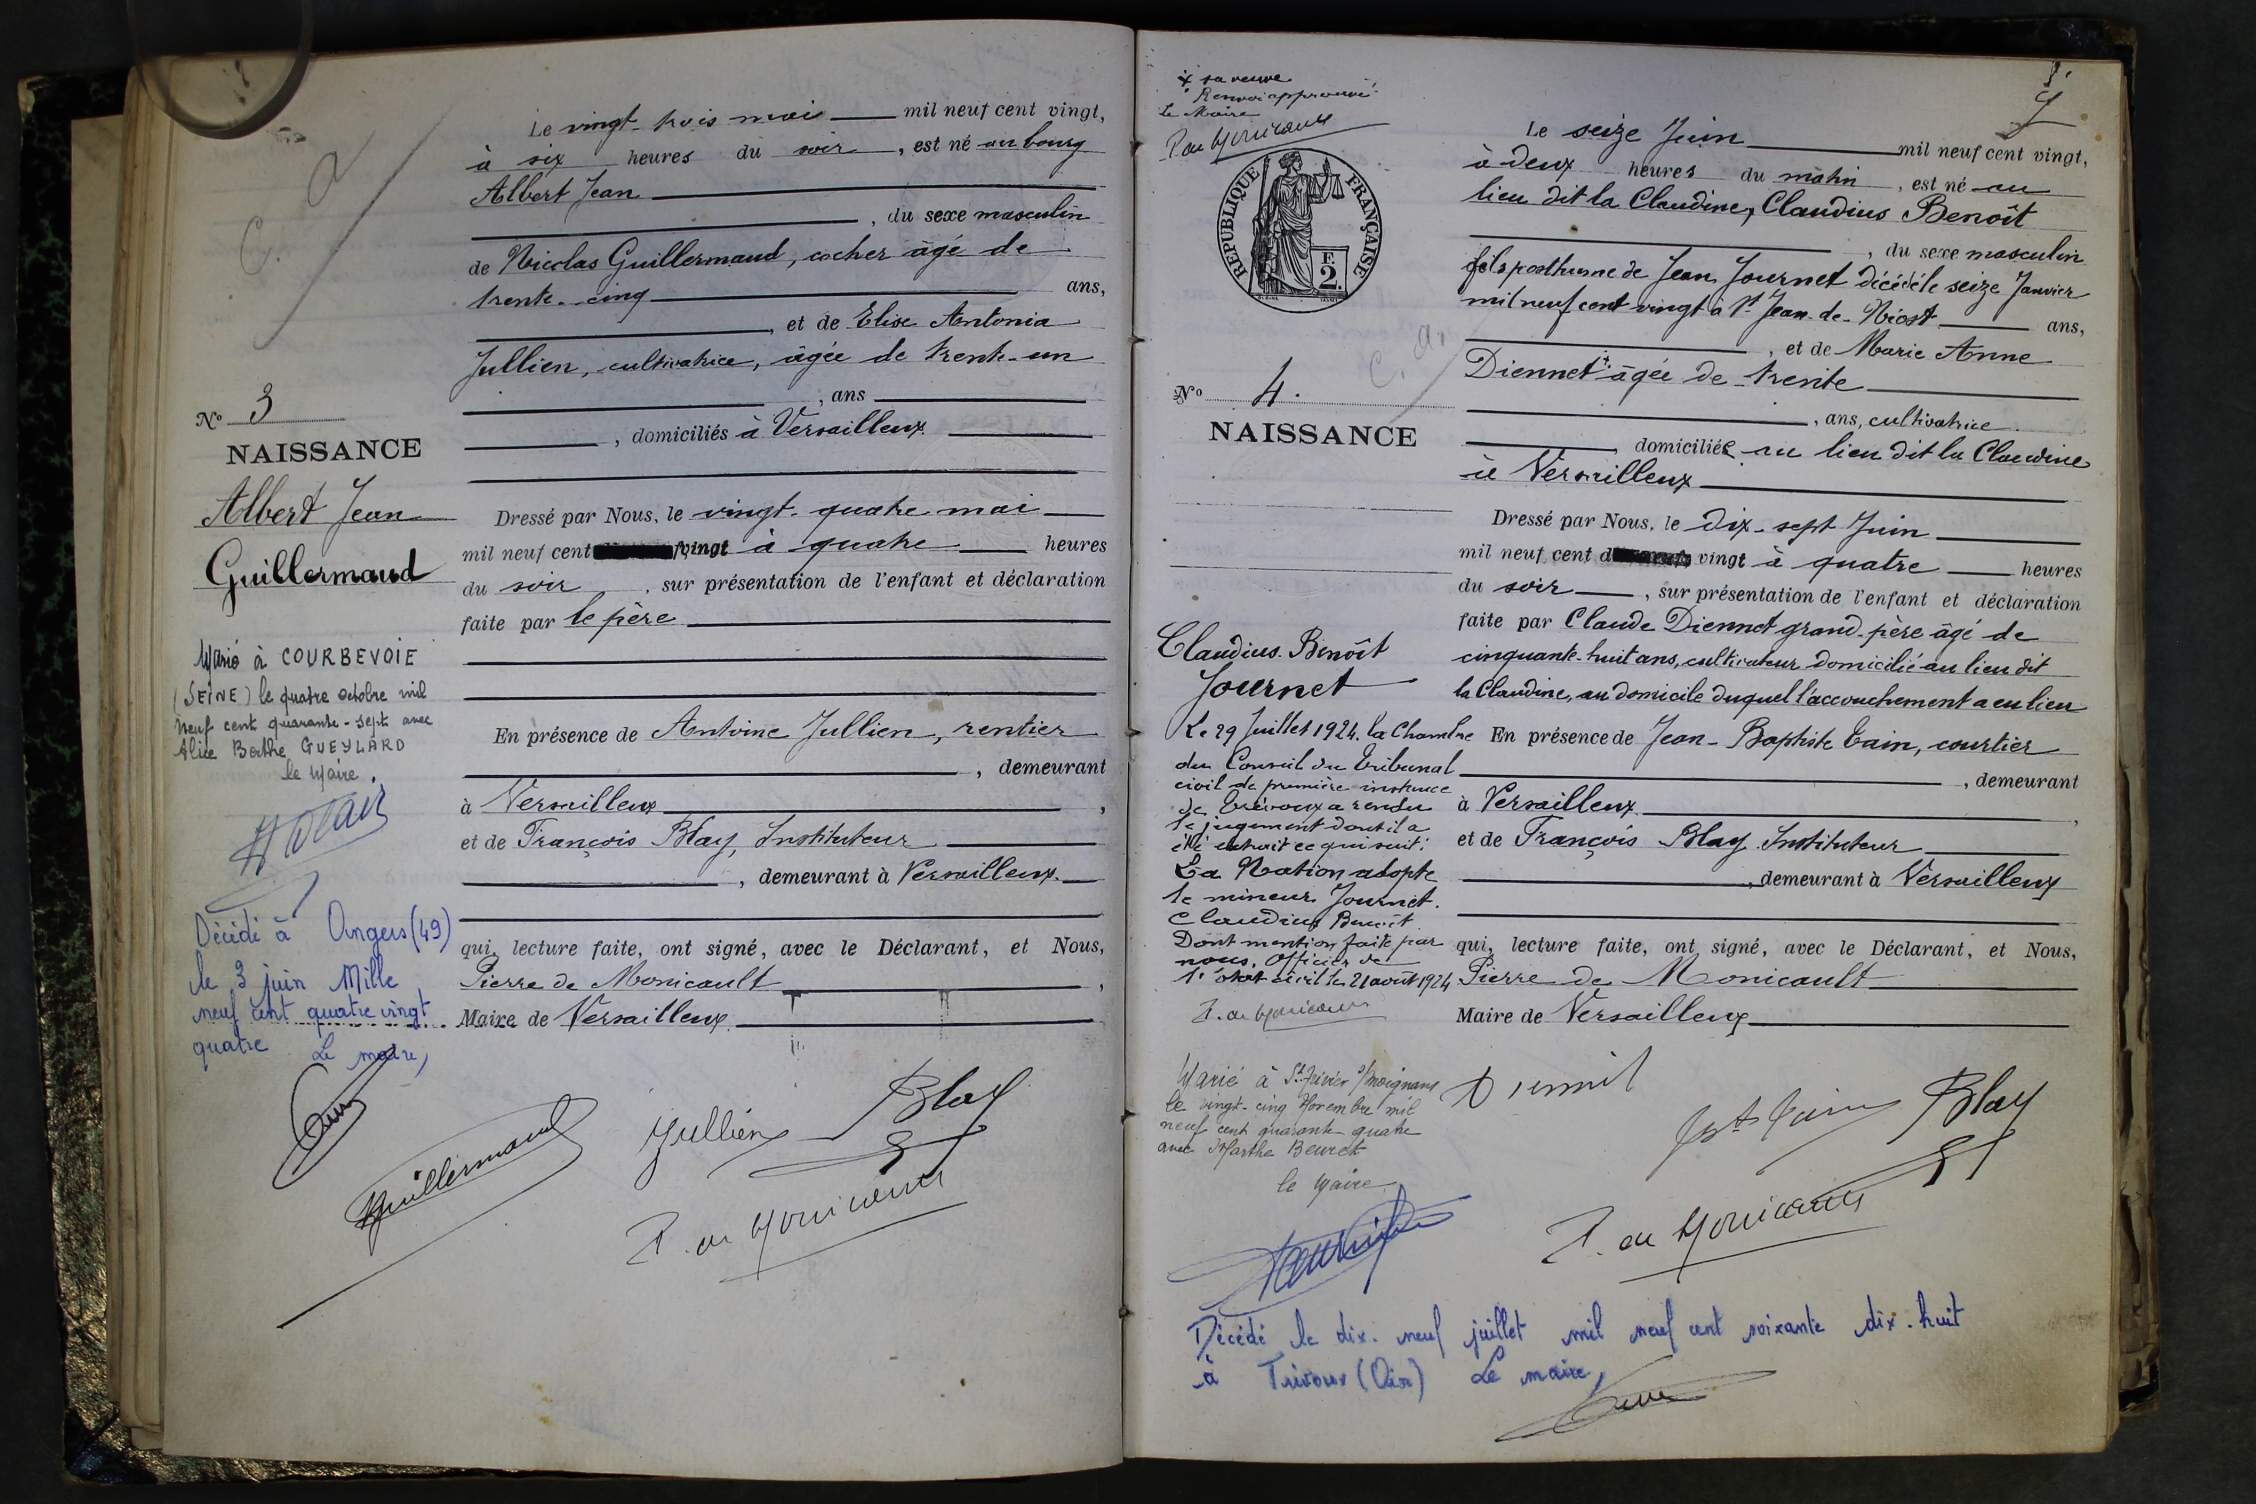 C. a
N° 3
NAISSANCE
Albert Jean
Guillermaud
Marié à COURBEVOIE
(SEINE) le quatre octobre mil
neuf cent quarante-sept avec
Alice Berthe GUEYLARD
le Maire.
Décédé à Angers (49)
le 3 juin Mille
neuf cent quatre vingt
quatre Le maire,
Le vingt-trois mai mil neuf cent vingt,
à six heures du soir, est né au bourg
Albert Jean
, du sexe masculin
de Nicolas Guillermaud, cocher âgé de
trente-cinq ans,
, et de Elise Antonia
Jullien, cultivatrice, âgée de trente-un
, ans
, domiciliés à Versailleux
Dressé par Nous, le vingt-quatre mai
mil neuf cent vingt à quatre heures
du soir, sur présentation de l'enfant et déclaration
faite par le père
En présence de Antoine Jullien, rentier
, demeurant
à Versailleux,
et de François Blay, Instituteur
, demeurant à Versailleux.
qui, lecture faite, ont signé, avec le Déclarant, et Nous,
Pierre de Monicault,
Maire de Versailleux
Guillermaud
Jullien
Blay
P. de Monicault
+ sa veuve
Renvoi approuvé
Le Maire
P. de Monicault
RÉPUBLIQUE FRANÇAISE
F.
2.
C. a.
N° 4.
NAISSANCE
Claudius Benoît
Journet
Le 29 Juillet 1924. la Chambre
du Conseil du Tribunal
civil de première instance
de Trévoux a rendu
le jugement dont il a
été extrait ce qui suit:
La Nation adopte
le mineur Journet.
Claudius Benoît
Dont mention faite par
nous, Officier de
l'état civil le 21 août 1924
P. de Monicault
Marié à St Trivier s/Moignans
le vingt-cinq Novembre mil
neuf cent quarante quatre
avec Marthe Beuret
le Maire
Le seize Juin mil neuf cent vingt,
à deux heures du matin, est né au
lieu dit la Claudine, Claudius Benoît
, du sexe masculin
fils posthume de Jean Journet décédé le seize Janvier
mil neuf cent vingt à St Jean-de-Niost ans,
, et de Marie Anne
Diennet + âgée de trente
, ans, cultivatrice.
domiciliée au lieu dit la Claudine
à Versailleux
Dressé par Nous, le dix-sept Juin
mil neuf cent vingt à quatre heures
du soir, sur présentation de l'enfant et déclaration
faite par Claude Diennet grand-père âgé de
cinquante-huit ans, cultivateur domicilié au lieu dit
la Claudine, au domicile duquel l'accouchement a eu lieu
En présence de Jean-Baptiste Cain, courtier
, demeurant
à Versailleux,
et de François Blay Instituteur
, demeurant à Versailleux
qui, lecture faite, ont signé, avec le Déclarant, et Nous,
Pierre de Monicault
Maire de Versailleux
Blay
P. de Monicault
Décédé le dix-neuf juillet mil neuf cent soixante dix-huit
à Trévoux (Ain) Le maire,